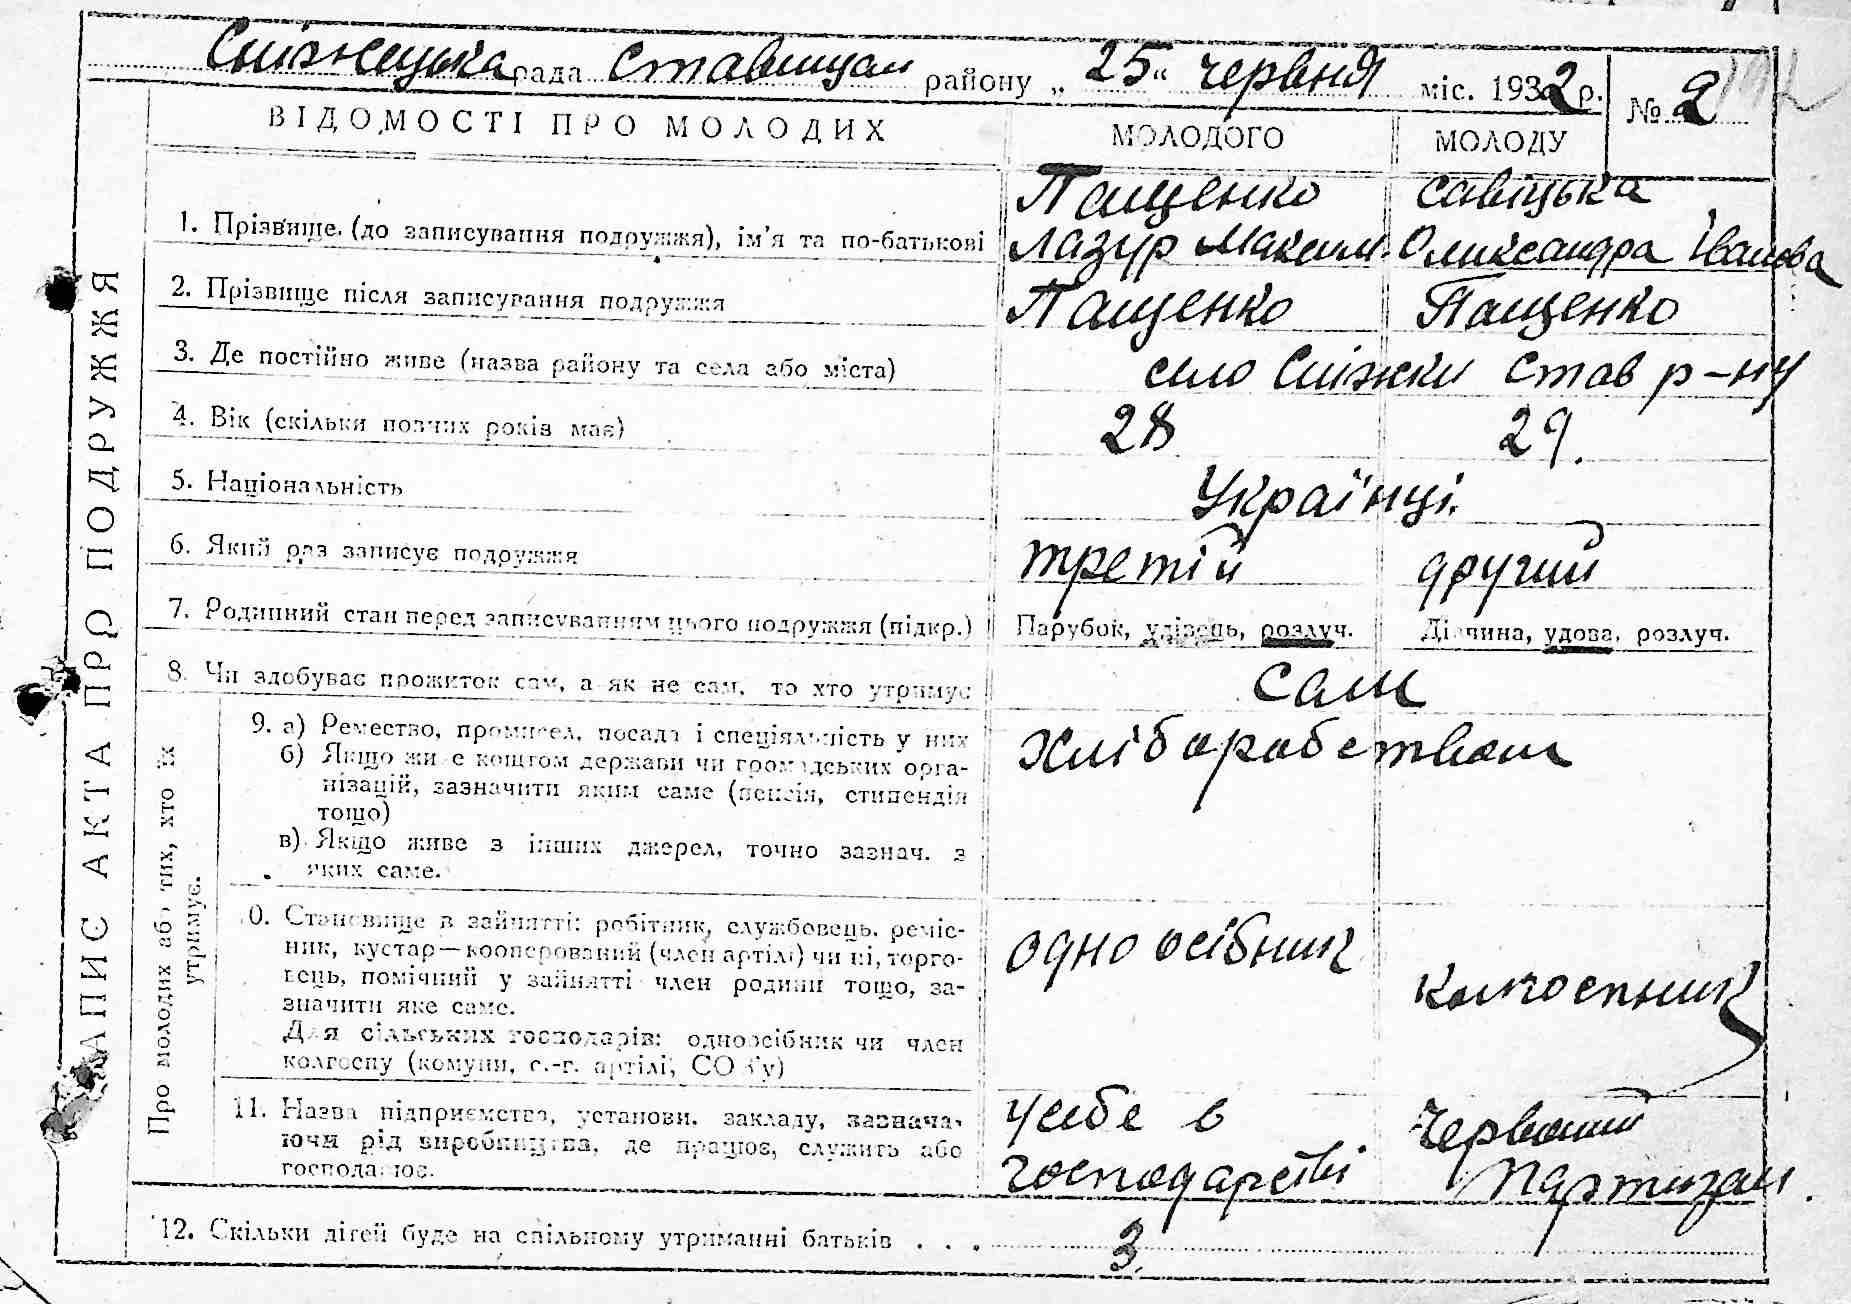 Сніжецька рада Ставищан району „ 25 “ червня міс. 1932 р. № 2
ВІДОМОСТІ ПРО МОЛОДИХ МОЛОДОГО МОЛОДУ
Пащенко савіцька
1. Прізвище (до записування подружжя), ім'я та по-батькові Лазур Максим. Оликсандра Іванова
2. Прізвище після записування подружжя Пащенко Пащенко
3. Де постійно живе (назва району та села або міста) село Сніжки Став р-ну
4. Вік (скільки повних років має) 28 29.
5. Національність Українці.
6. Який раз записує подружжя третій другий
7. Родинний стан перед записуванням цього подружжя (підкр.) Парубок, удівець, розлуч. Дівчина, удова, розлуч.
8. Чи здобуває прожиток сам, а як не сам, то хто утримує сам
9. а) Ремество, промисел, посада і спеціяльність у них Хліборобством
б) Якщо живе коштом держави чи громадських орга-
нізацій, зазначити яким саме (пенсія, стипендія
тощо)
в) Якщо живе з інших джерел, точно зазнач. з
яких саме.
10. Становище в зайнятті: робітник, службовець, реміс-
ник, кустар—кооперований (член артілі) чи ні, торго- одноосібник
вець, помічний у зайнятті член родини тощо, за- колгоспник
значити яке саме.
Для сільських господарів: одноосібник чи член
колгоспу (комуни, с.-г. артілі, СОЗ'у)
11. Назва підприємства, установи, закладу, зазнача- у себе в Червоний
ючи рід виробництва, де працює, служить або господарстві Партизан.
господарює.
12. Скільки дітей буде на спільному утриманні батьків . . . 3.
ЗАПИС АКТА ПРО ПОДРУЖЖЯ
Про молодих або тих, хто їх
утримує.